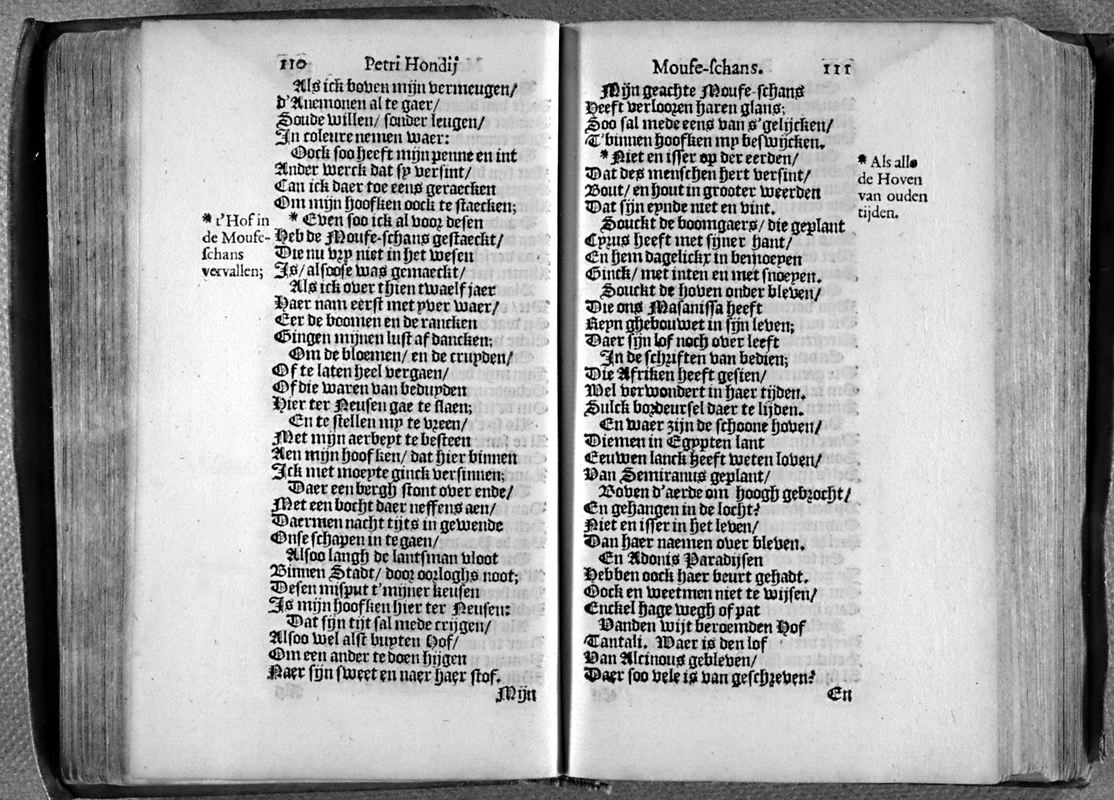 110 Petri Hondij
Als ick boven mijn vermeugen/
d'Anemonen al te gaer/
Soude willen/ sonder leugen/
In coleure nemen waer:
Oock soo heeft mijn penne en int
Ander werck dat sy versint/
Can ick daer toe eens geraecken
Om mijn hoofken oock te staecken;
* t'Hof in de Mouse-schans vervallen;
* Even soo ick al voor desen
Heb de Mouse-schans gestaeckt/
Die nu vry niet in het wesen
Is/ alsoose was gemaeckt/
Als ick over thien twaelf jaer
Haer nam eerst met yver waer/
Eer de boomen en de rancken
Gingen mijnen lust af dancken;
Om de bloemen/ en de cruyden/
Of te laten heel vergaen/
Of die waren van beduyden
Hier ter Neusen gae te slaen;
En te stellen my te vreen/
Met mijn aerbeyt te besteen
Aen mijn hoofken/ dat hier binnen
Ick met moeyte ginck versinnen;
Daer een bergh stont over ende/
Met een bocht daer neffens aen/
Daermen nacht tijts in gewende
Onse schapen in te gaen/
Alsoo langh de lantsman vloot
Binnen Stadt/ door oorloghs noot;
Desen mijsput t'mijner keusen
Is mijn hoofken hier ter Neusen:
Dat sijn tijt sal mede crijgen/
Alsoo wel alst buyten Hof/
Om een ander te doen hijgen
Naer sijn sweet en naer haer stof.
Mijn
Mouse-schans. 111
Mijn geachte Mouse-schans
Heeft verlooren haren glans;
Soo sal mede eens van s'gelijcken/
T'binnen hoofken my beswijcken.
* Als alle
de Hoven
van ouden
tijden.
* Niet en isser op der eerden/
Dat des menschen hert versint/
Bout/ en hout in grooter weerden
Dat sijn eynde niet en vint.
Souckt de boomgaers/ die geplant
Cyrus heeft met sijner hant/
En hem dagelickx in bemoeyen
Ginck/ met inten en met snoeyen.
Souckt de hoven onder bleven/
Die ons Masanissa heeft
Reyn ghebouwet in sijn leven;
Daer sijn lof noch over leeft
In de schriften van bedien;
Die Afriken heeft gesien/
Wel verwondert in haer tijden.
Sulck bordeursel daer te lijden.
En waer zijn de schoone hoven/
Diemen in Egypten lant
Eeuwen lanck heeft weten loven/
Van Semiranus geplant/
Boven d'aerde om hoogh gebrocht/
En gehangen in de locht?
Niet en isser in het leven/
Dan haer naemen over bleven.
En Adonis Paradijsen
Hebben oock haer beurt gehadt.
Oock en weetmen niet te wijsen/
Enckel hage wegh of pat
Vanden wijt beroemden Hof
Tantali. Waer is den lof
Van Alcinous gebleven/
Daer soo vele is van geschreven?
En